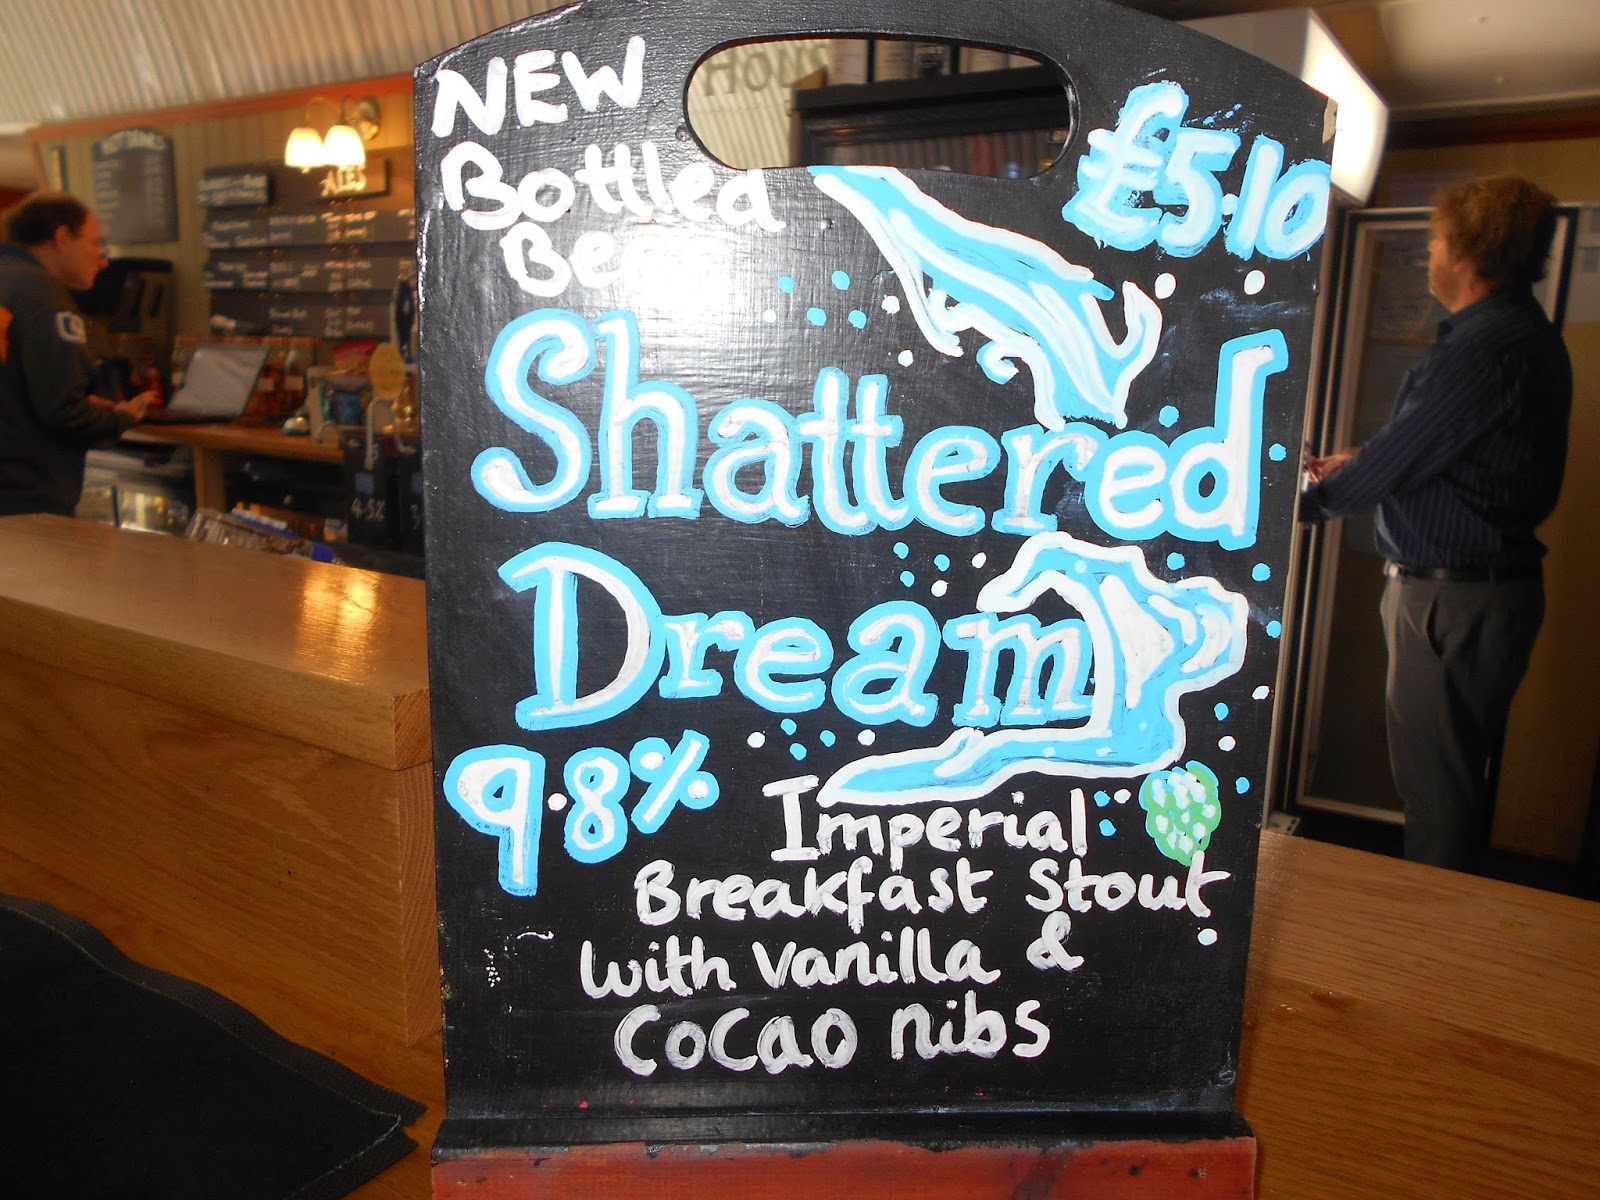 NEW
Bottled
Beer
£5.10
Shattered
Dream
9.8%
Imperial
Breakfast Stout
with vanilla &
Cocao nibs
ALES
4.5%